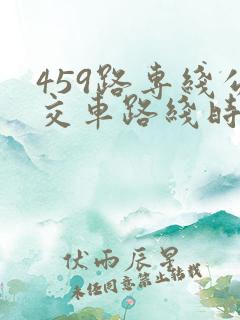 459路专綫公
交车路綫时
伏雨辰星
未经同意禁止转载